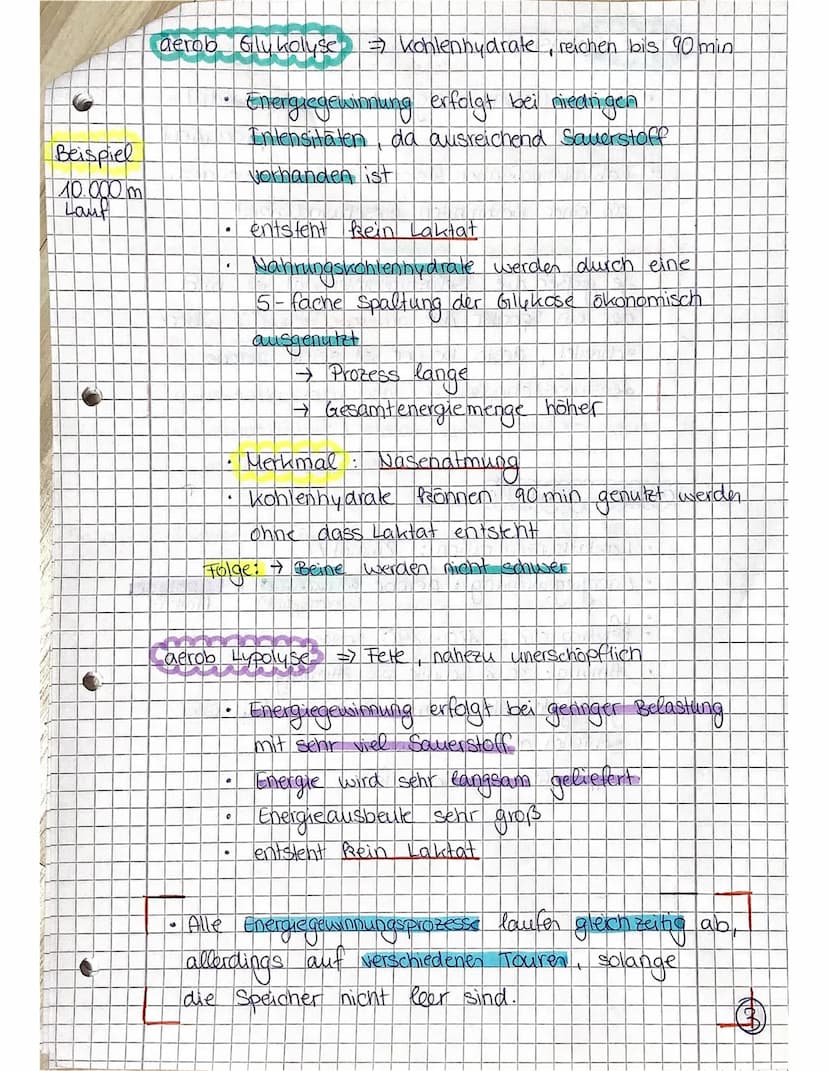 aerob Glykolyse => Kohlenhydrate, reichen bis 90 min
• Energiegewinnung erfolgt bei niedrigen
Intensitäten, da ausreichend Sauerstoff
vorhanden ist
Beispiel
10.000 m
Lauf
• entsteht kein Laktat
• Nahrungskohlenhydrate werden durch eine
5-fache Spaltung der Glykose ökonomisch
ausgenutzt
→ Prozess lange
→ Gesamtenergiemenge höher
• Merkmal: Nasenatmung
• Kohlenhydrate können 90 min genutzt werden
ohne dass Laktat entsteht
Folge: → Beine werden nicht schwer
aerob Lypolyse => Fete, nahezu unerschöpflich
• Energiegewinnung erfolgt bei geringer Belastung
mit sehr viel Sauerstoff
• Energie wird sehr langsam geliefert
• Energieausbeute sehr groß
• entsteht kein Laktat
• Alle Energiegewinnungsprozesse laufen gleichzeitig ab,
allerdings auf verschiedenen Touren, solange
die Speicher nicht leer sind.
3